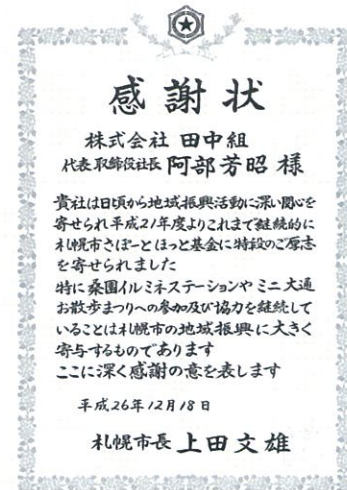 感謝状
株式会社 田中組
代表取締役社長 阿部芳昭 様
貴社は日頃から地域振興活動に深い関心を
寄せられ平成21年度よりこれまで継続的に
札幌市さぽーとほっと基金に特段のご厚志
を寄せられました
特に桑園イルミネステーションや ミニ大通
お散歩まつりへの参加及び協力を継続して
いることは札幌市の地域振興に大きく
寄与するものであります
ここに深く感謝の意を表します
平成26年12月18日
札幌市長 上田文雄